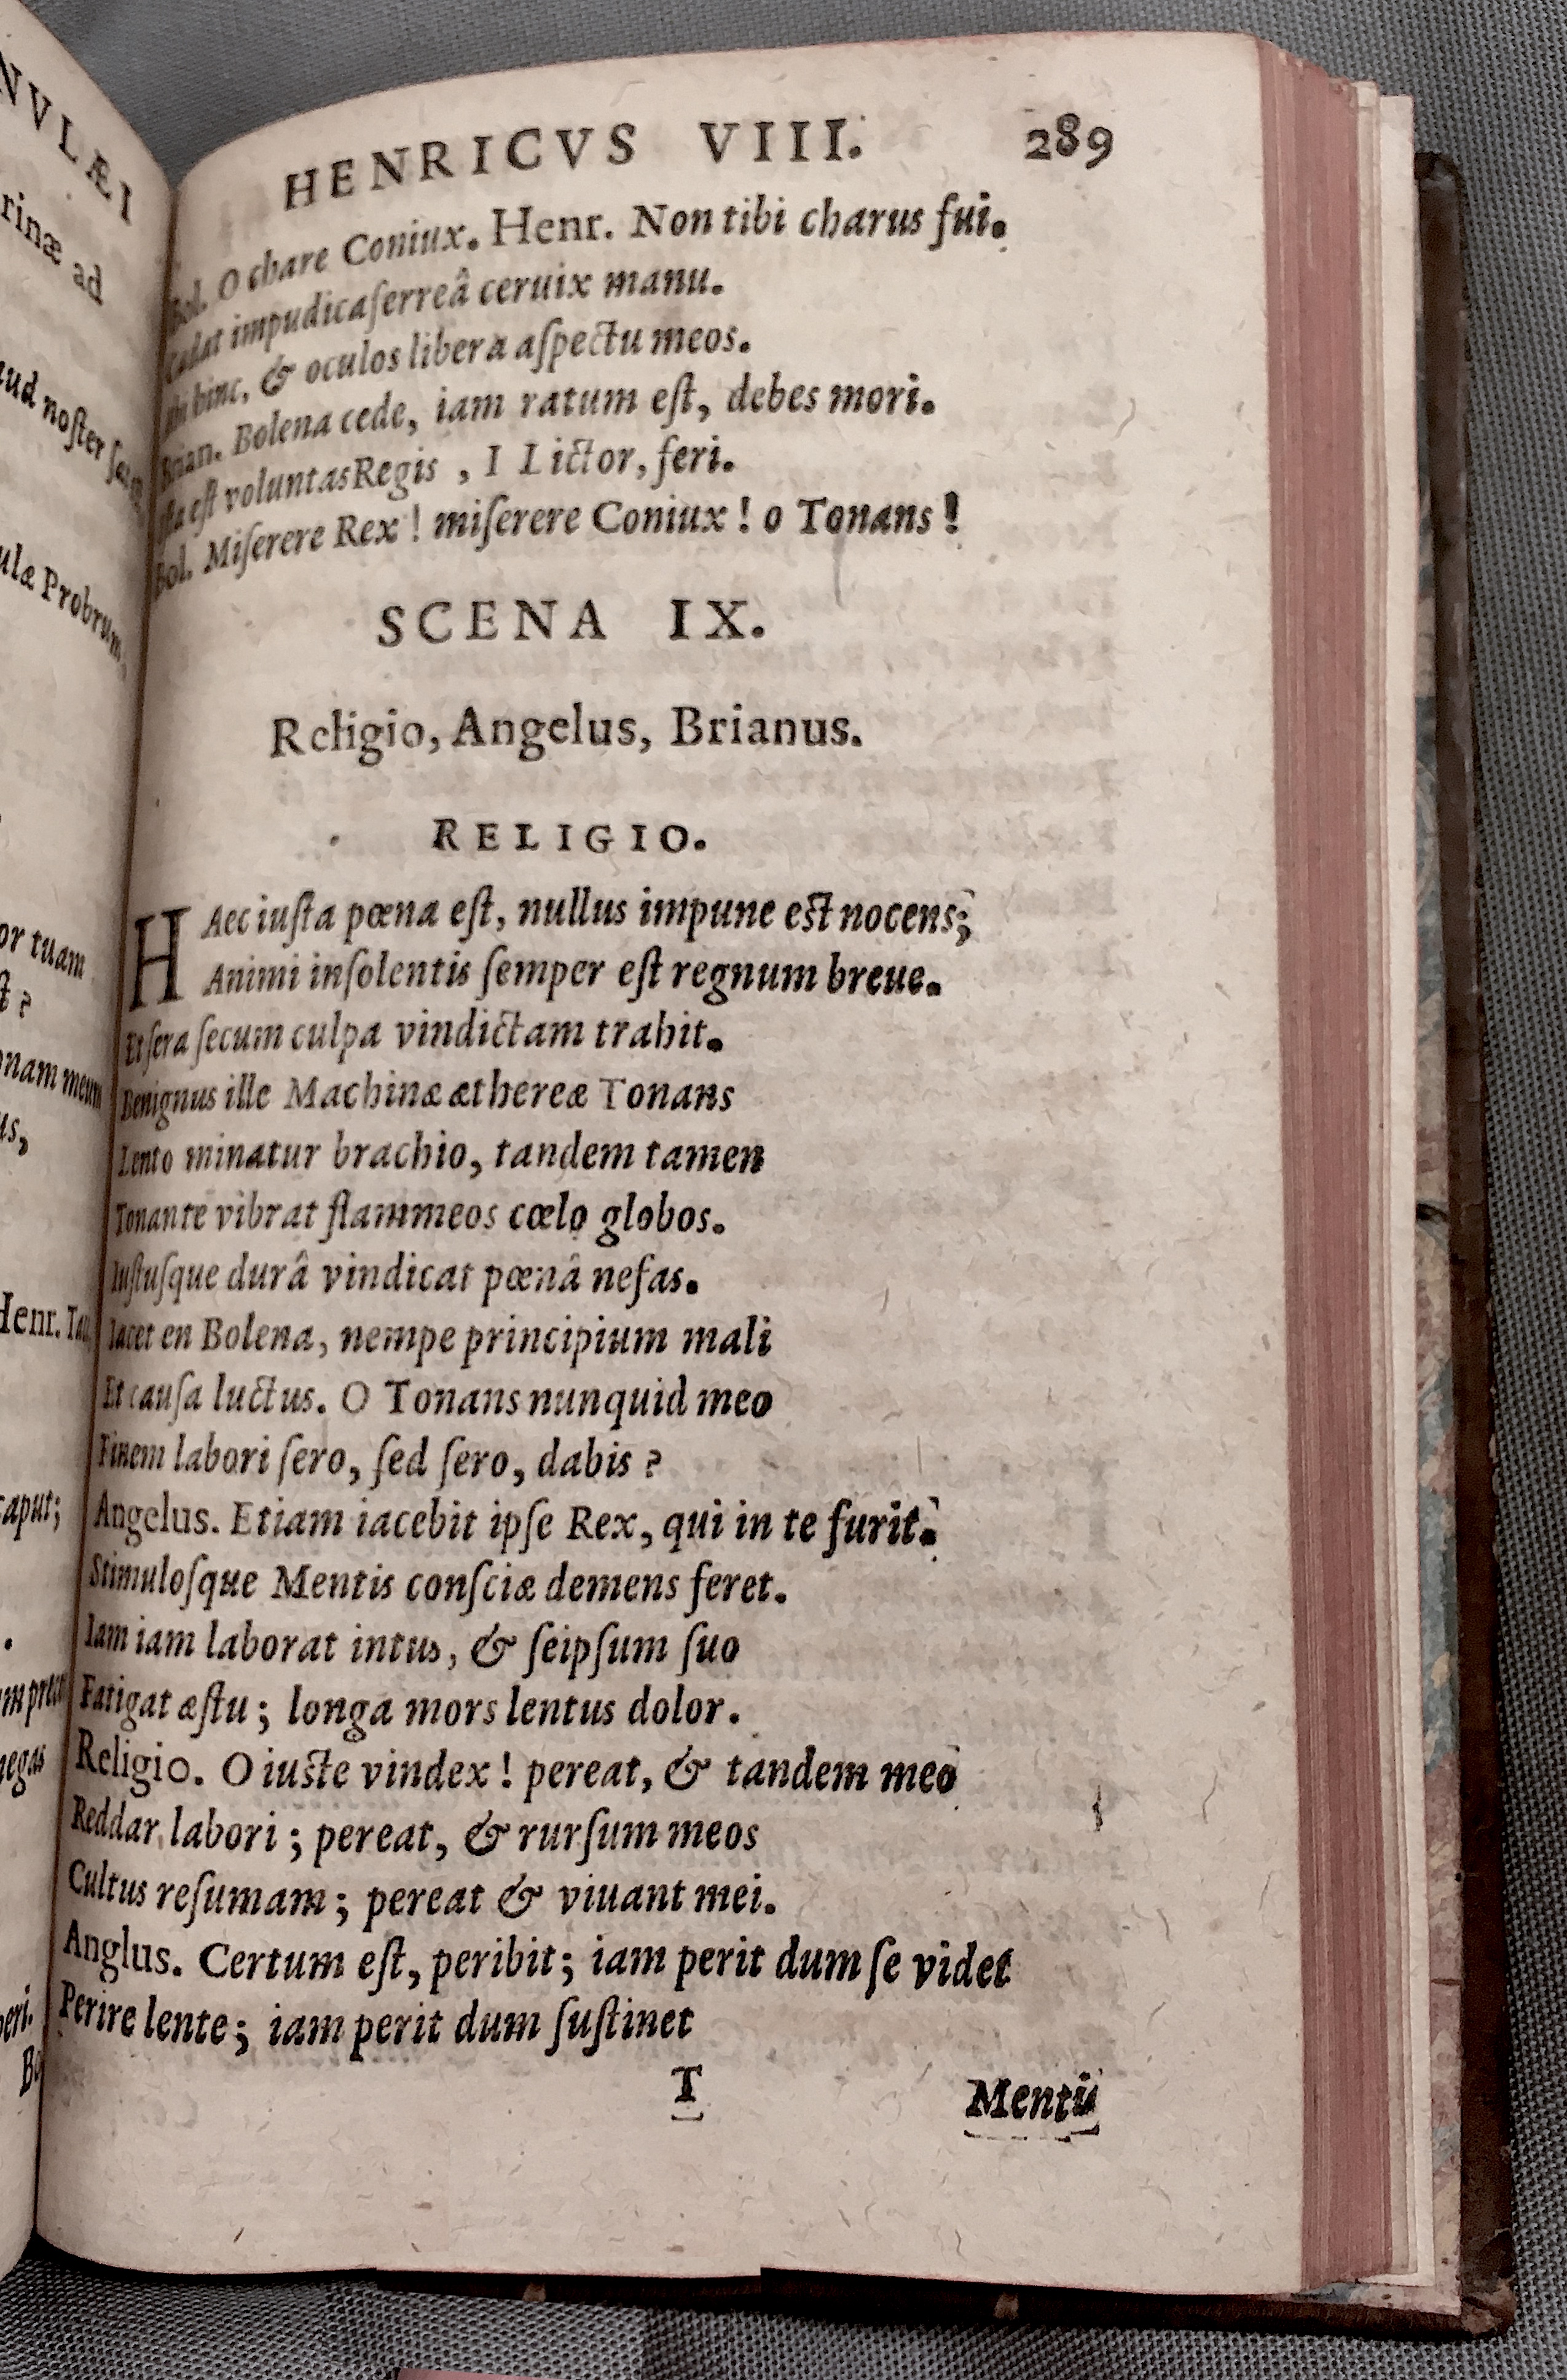 NVLÆI
rinæ ad
noſter
ulæ Probrum,
or tuam
ſt ?
us,
Henr.
caput;
negas
HENRICVS VIII. 289
Bol. O chare Coniux. Henr. Non tibi charus fui.
Cadat impudica ferreâ ceruix manu.
hinc, & oculos libera aſpectu meos.
Brian. Bolena cede, iam ratum eſt, debes mori.
eſt voluntas Regis , I Lictor, feri.
Bol. Miſerere Rex ! miſerere Coniux ! o Tonans !
SCENA IX.
Religio, Angelus, Brianus.
RELIGIO.
HAec iuſta pœna eſt, nullus impune eſt nocens;
Animi inſolentis ſemper eſt regnum breue.
Et ſera ſecum culpa vindictam trahit.
Benignus ille Machinæ æthereæ Tonans
Lento minatur brachio, tandem tamen
Tonante vibrat flammeos cœlo globos.
Iuſtuſque durâ vindicat pœnâ nefas.
Iacet en Bolena, nempe principium mali
Et cauſa luctus. O Tonans nunquid meo
Finem labori ſero, ſed ſero, dabis ?
Angelus. Etiam iacebit ipſe Rex, qui in te furit.
Stimuloſque Mentis conſciæ demens feret.
Iam iam laborat intus, & ſeipſum ſuo
Fatigat æſtu ; longa mors lentus dolor.
Religio. O iuſte vindex ! pereat, & tandem meo
Reddar labori ; pereat, & rurſum meos
Cultus reſumam ; pereat & viuant mei.
Anglus. Certum eſt, peribit ; iam perit dum ſe videt
Perire lente ; iam perit dum ſuſtinet
T Mentis